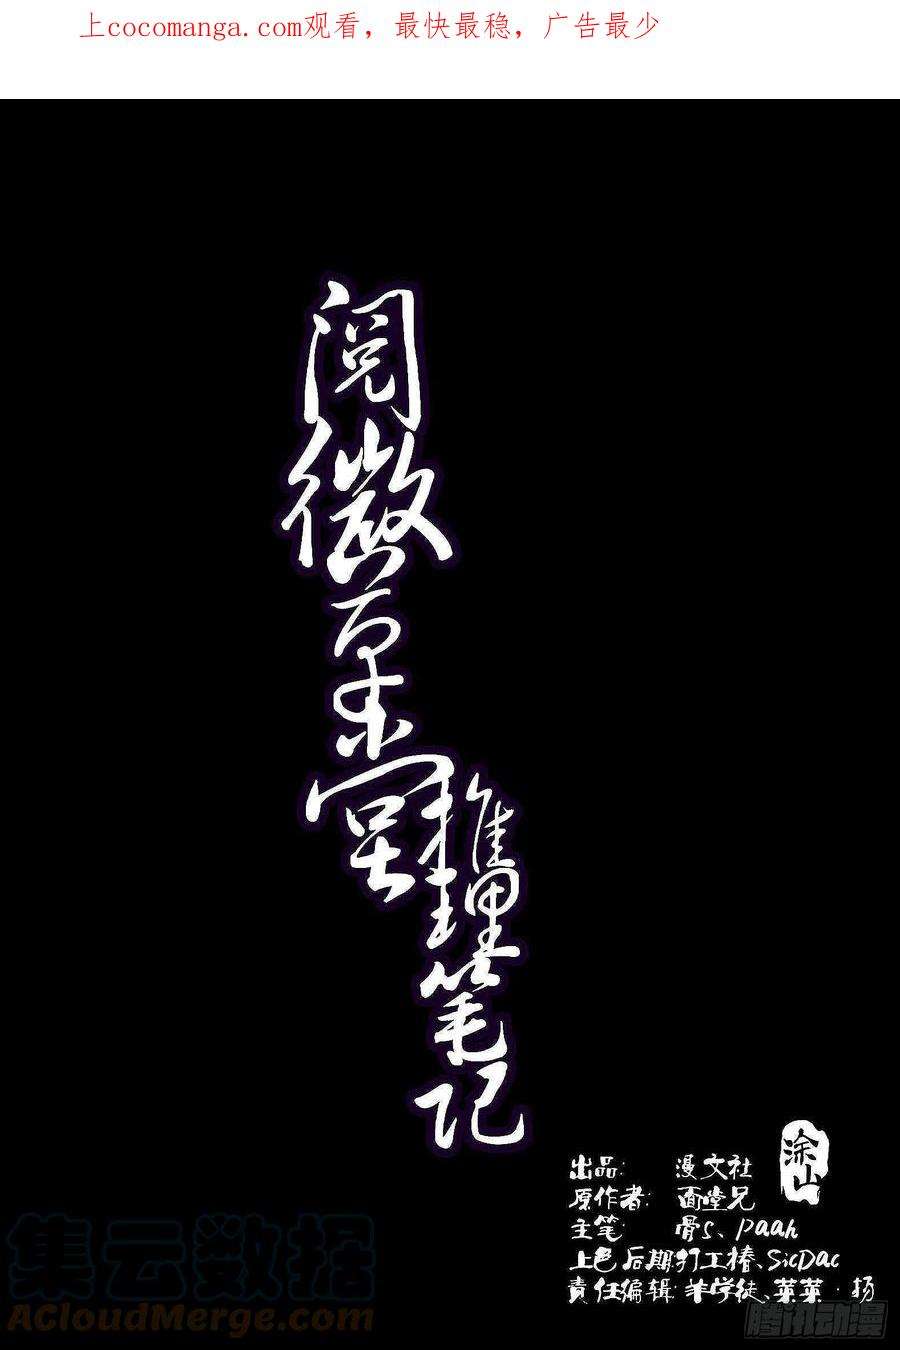 上cocomanga.com观看，最快最稳，广告最少
阅微草堂
推理笔记
涂山
出品： 漫文社
原作者： 面堂兄
主笔： 骨S、paah
上色后期打工椿、SicDac
責任编辑：羊学徒、菜菜·杨
集云数据
AcloudMerge.com
腾讯动漫